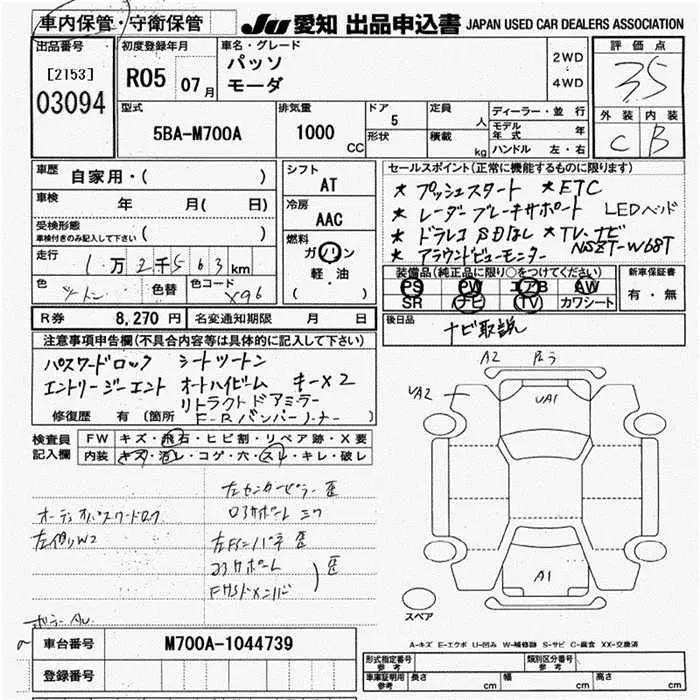 車内保管・守衛保管 JU 愛知 出品申込書 JAPAN USED CAR DEALERS ASSOCIATION
出品番号 [2153] 03094
初度登録年月 R05 07月
車名・グレード パッソ モーダ
2WD・4WD
評価点 3.5
外装 C 内装 B
型式 5BA-M700A
排気量 1000 CC
ドア 5 形状
定員 人 積載 kg
ディーラー・並行
モデル年式 年
ハンドル 左・右
車歴 自家用・( )
車検 年 月( 日)
受検形態 車検付きのみ記入して下さい ( )
走行 1万2千563km
色 ツートン 色替 色コード X96
シフト AT
冷房 AAC
燃料 ガソリン 軽・油 ( )
セールスポイント(正常に機能するものに限ります)
★ プッシュスタート ★ ETC
★ レーダーブレーキサポート LEDヘッド
★ ドラレコ SDなし ★ TV・ナビ
★ アラウンドビューモニター NSZT-W68T
装備品(純正品に限り○をつけてください)
PS PW エアB AW
SR ナビ TV カワシート
新車保証書 有・無
R券 8,270円 名変通知期限 月 日
後日品 ナビ取説
注意事項申告欄(不具合内容等は具体的に記入して下さい)
パスワードロック シートツートン
エントリージーエント オートハイビーム キーX2
リトラクトドアミラー
修復履歴 有〔箇所 F-Rバンパーコーナー〕
検査員記入欄
FW キズ・飛石・ヒビ割・リペア跡・X要
内装 キズ・汚レ・コゲ・穴・スレ・キレ・破レ
左センターピラー 歪
ロアサポート
オーディオパスワードロック
左 W2
歪
コアサポート 歪
車台番号 M700A-1044739
登録番号
A2
UA2
UA1
A1
スペア
A-キズ E-エクボ U-凹み W-補修跡 S-サビ C-腐食 XX-交換済
形式指定番号 参考
類別区分番号 参考
車庫証明用 参考 長さ 幅 高さ cm